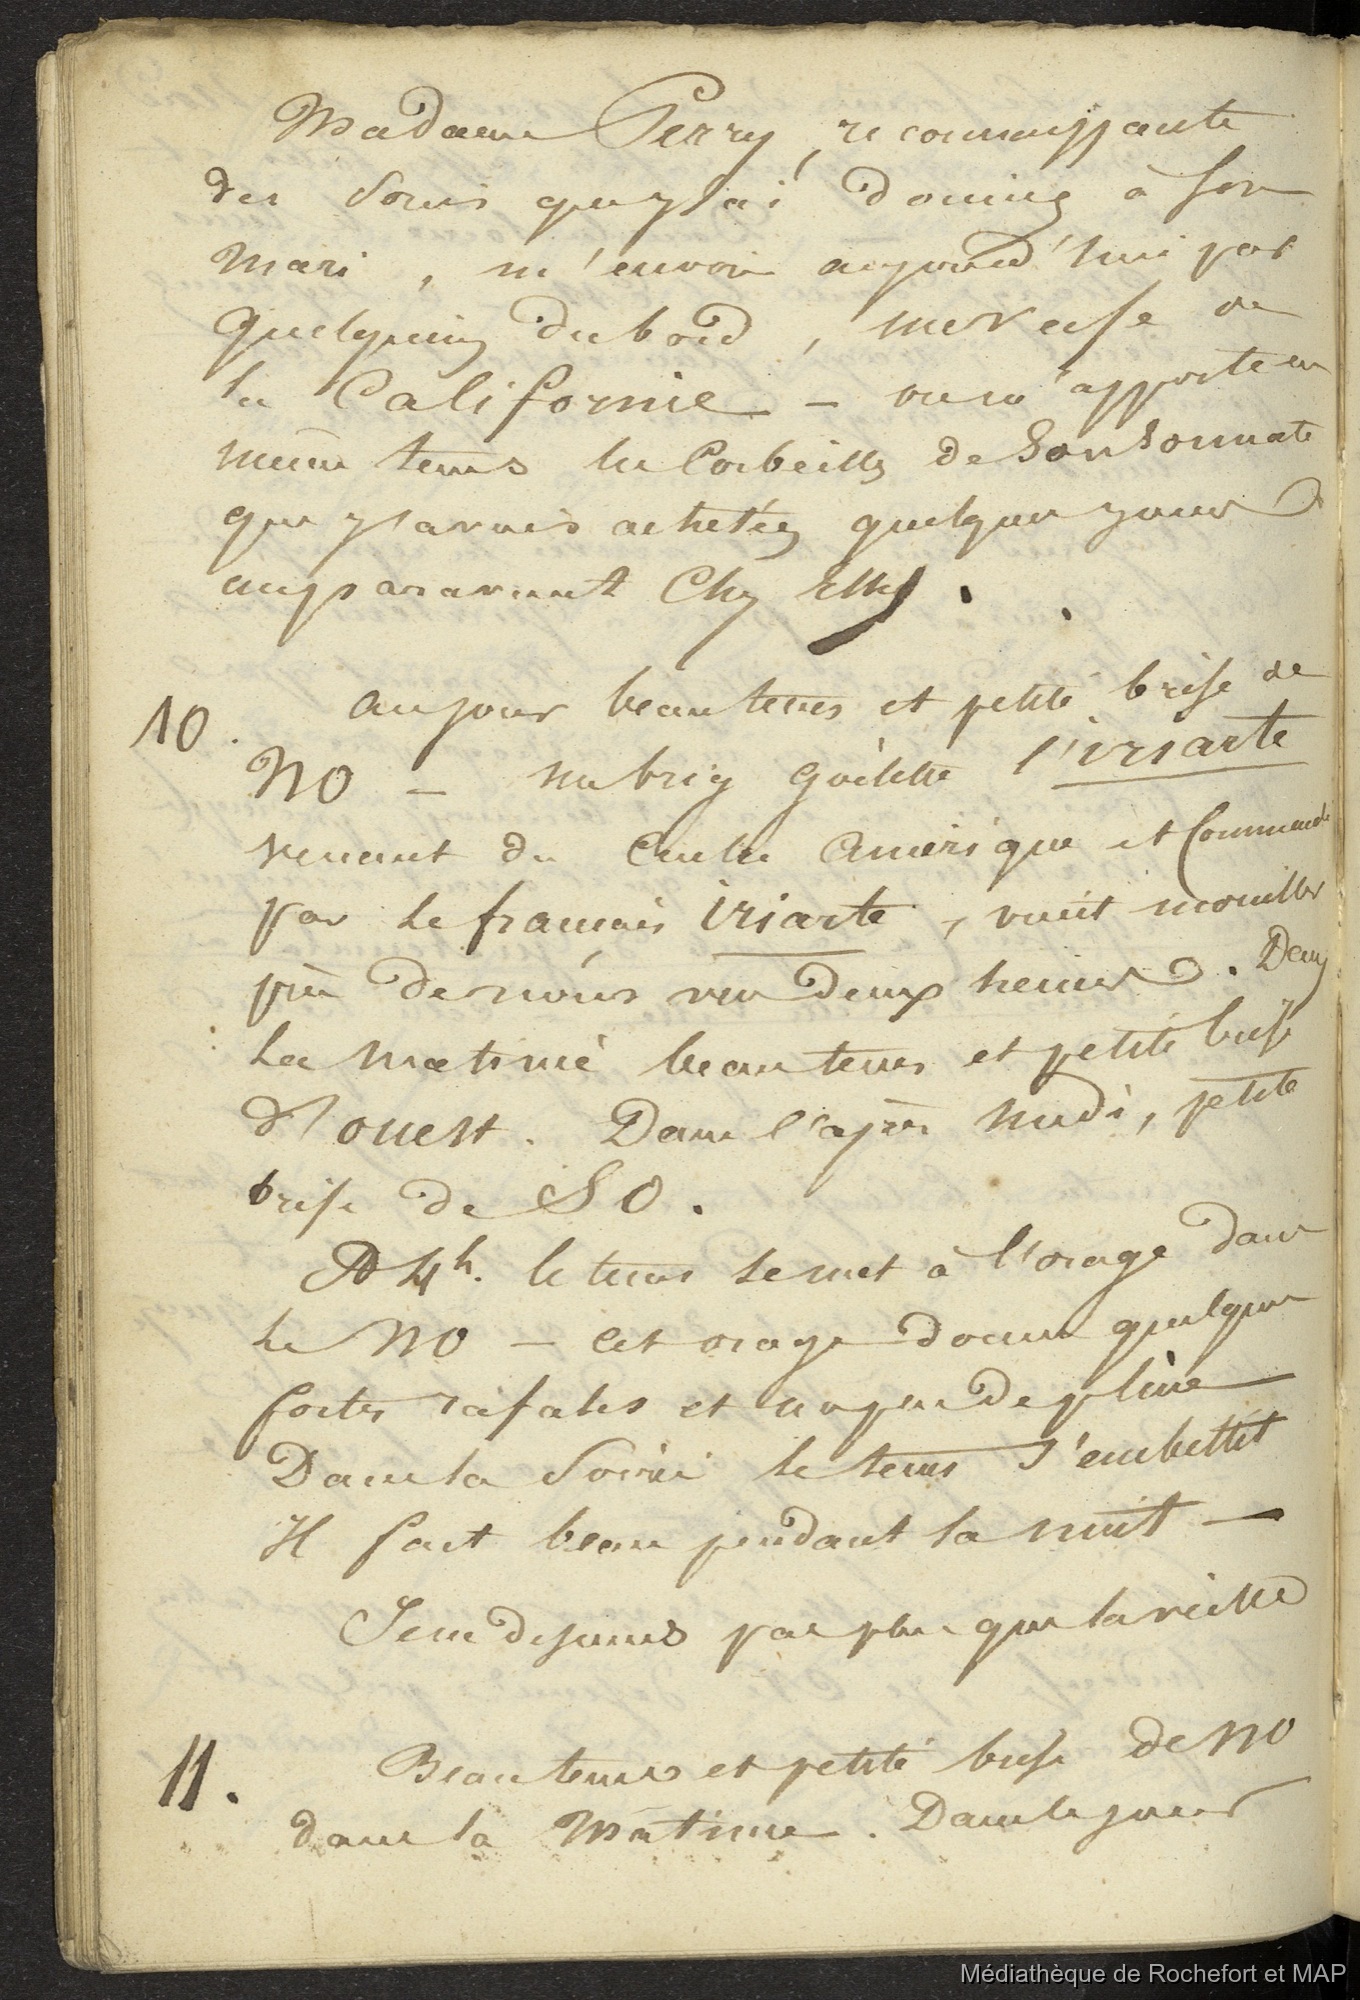 Madame Perry, reconnaissante
des soins que j'ai donnés à son
mari, m'envoie aujourd'hui par
quelqu'un du bord, une vase de
la Californie – on m'apporte en
même tems les Corbeilles de Sonsonnate
que j'avais achetées quelques jours
auparavant Chez Elle.
10. au jour beau tems et petite brise de
NO – un brig Goëlette l'iriarte
venant du Centre Amérique et Commandé
par le français iriarte, vient mouiller
près de nous vers deux heures. Dans
la matinée beau tems et petite brise
d'ouest. Dans l'après midi, petite
brise de SO.
A 4h. le tems se met à l'orage dans
le NO – cet orage donne quelques
fortes rafales et un peu de pluie
Dans la soirée le tems s'embellit
Il fait beau pendant la nuit –
Je ne dejeune pas plus que la veille
11. Beau tems et petite brise de NO
dans la Matinée. Dans le jour
Médiathèque de Rochefort et MAP